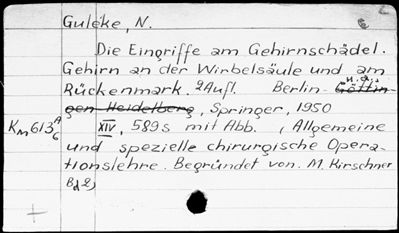 Gulcke, N.
Die Eingriffe am Gehirnschädel.
Gehirn an der Wirbelsäule und am
Rückenmark. 2Aufl. Berlin- Göttin- u.a.;
gen Heidelberg, Springer, 1950
Km613 A/6 XIV, 589s mit Abb. , Allgemeine
und spezielle chirurgische Opera-
tionslehre. Begründet von. M. Kirschner
Bd 2)